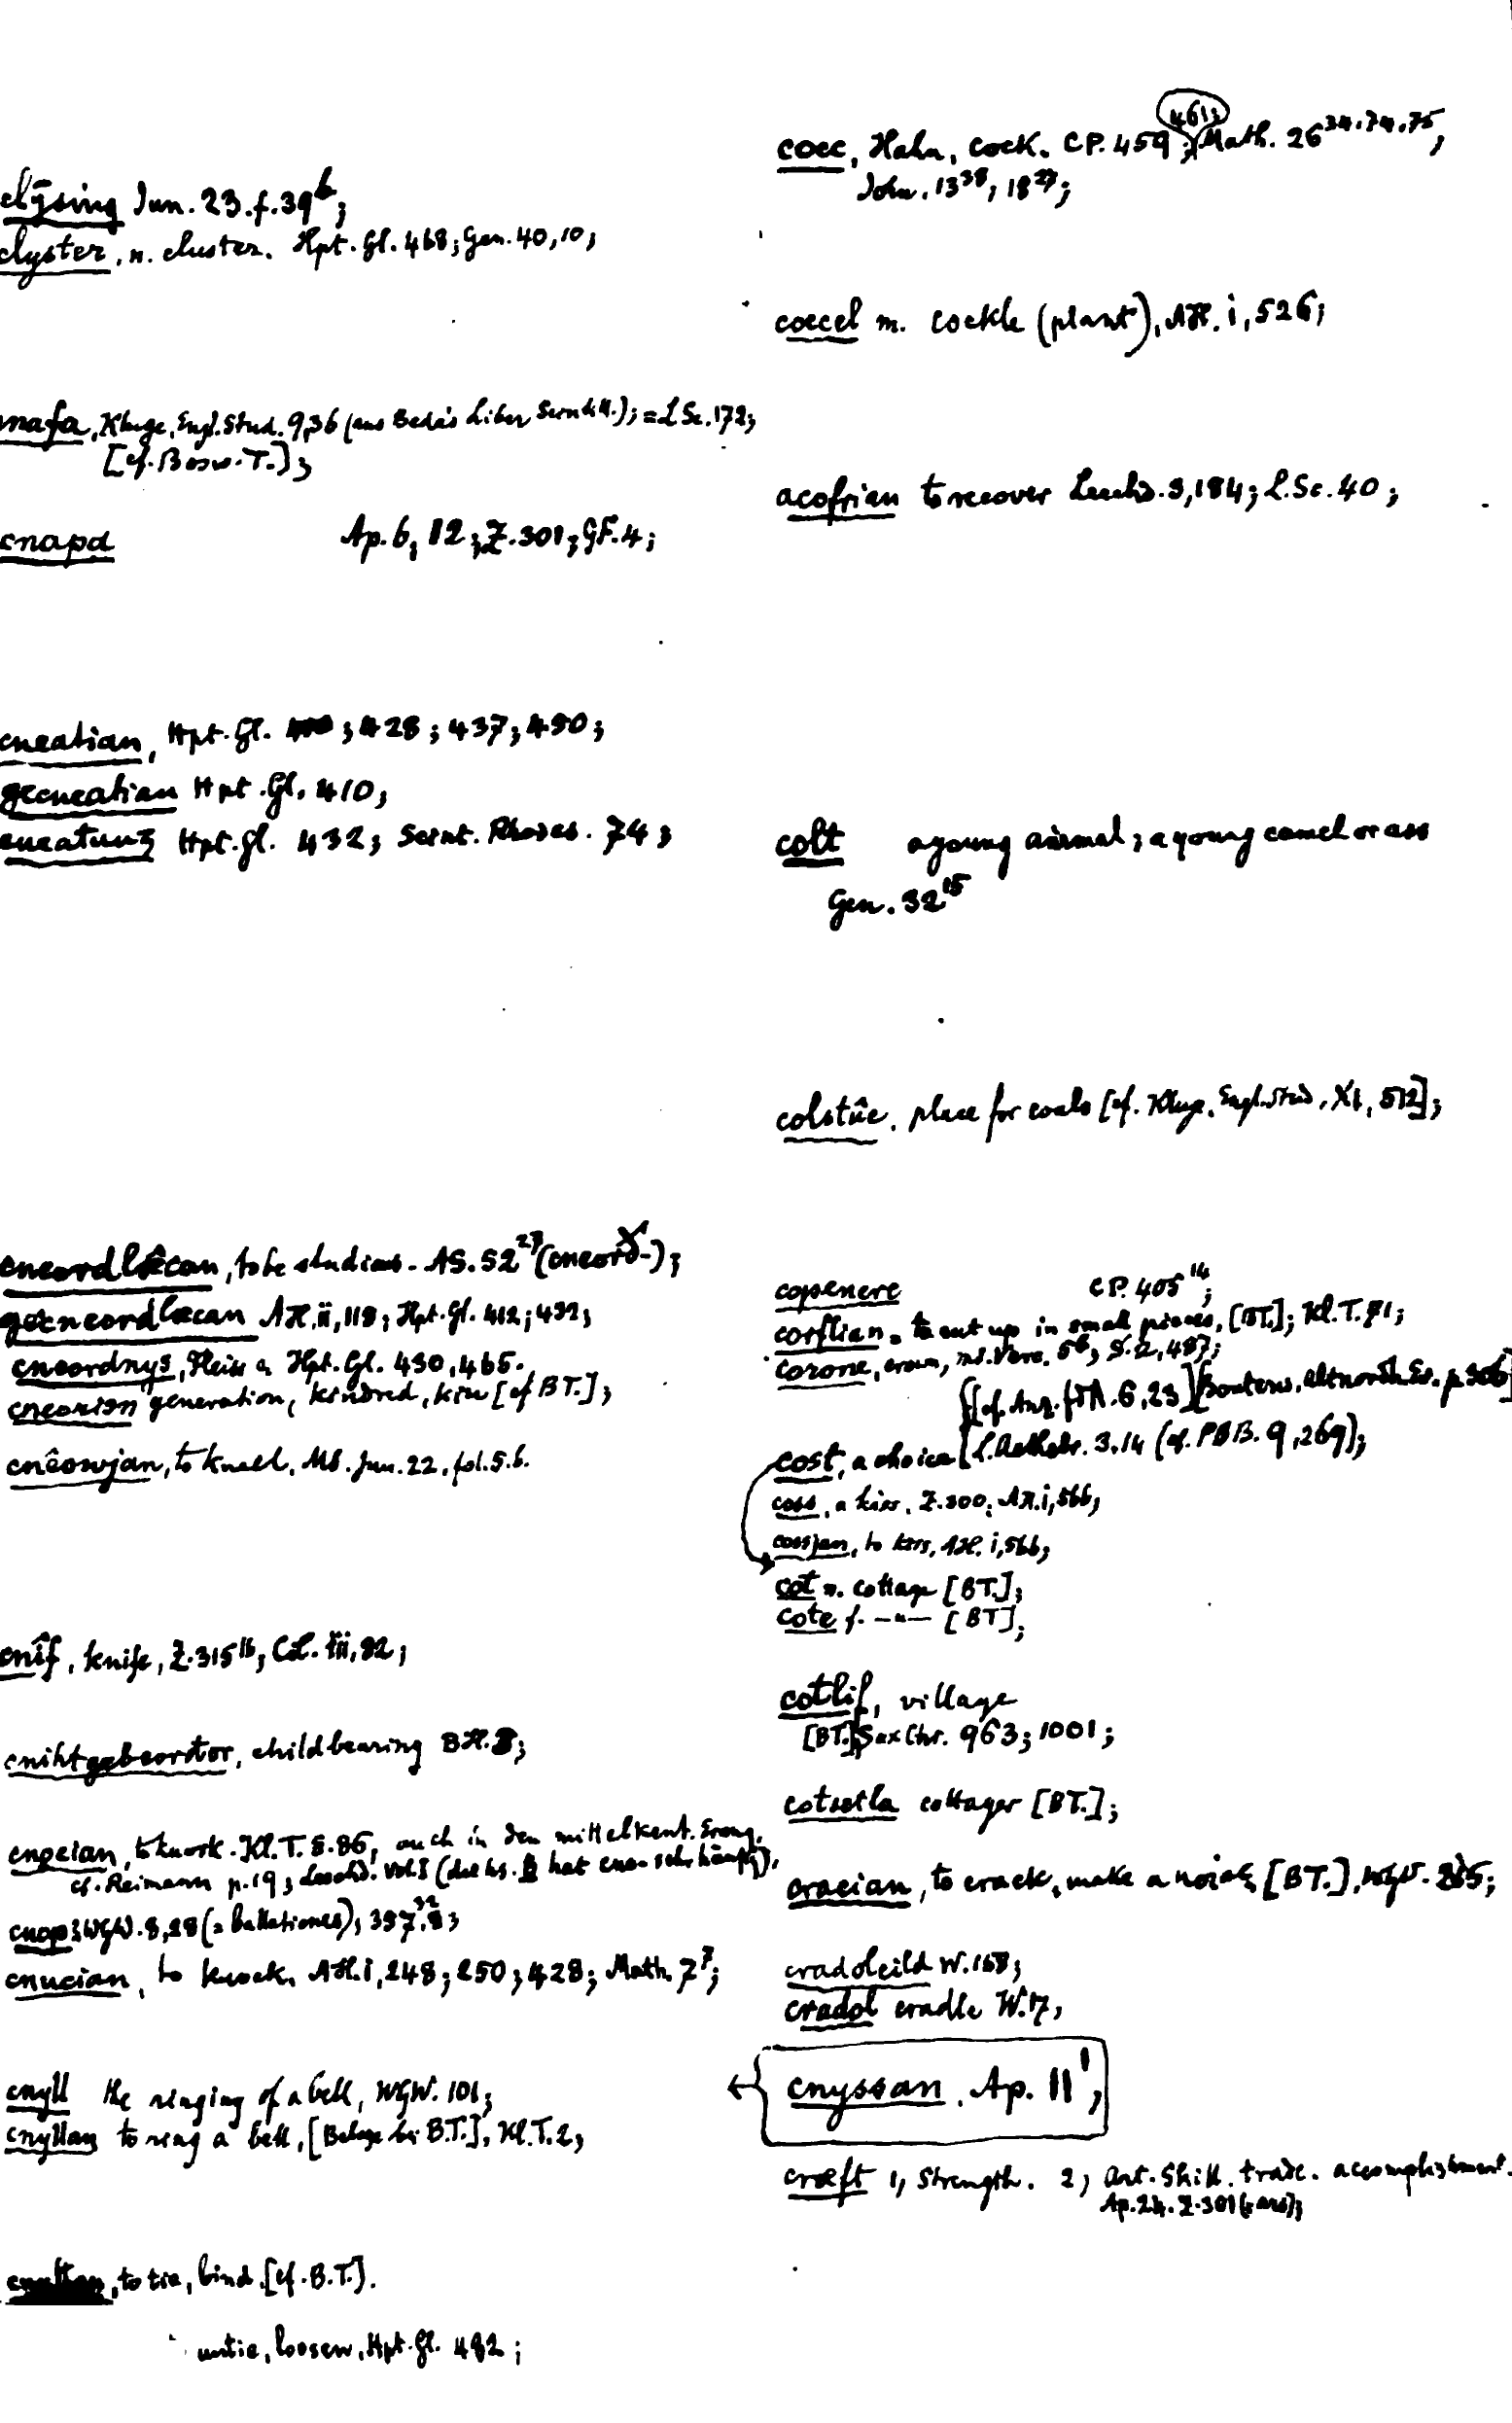 clȳsing Jun. 23. f. 39b;
clyster, n. cluster. Hpt. Gl. 468; Gen. 40, 10;
cnafa, Kluge, Engl. Stud. 9,36 (aus Beda's Liber); = LSc. 172;
[cf. Bosw. T.];
cnapa Ap. 6, 12; Z. 301; GF. 4;
cneatian, Hpt. Gl. ; 428; 437; 490;
gecneatian Hpt. Gl. 410;
cneatung Hpt. Gl. 432; Scint. 74;
cneordlæcan, to be studious. AS. 52 27 (cneord-);
gecneordlæcan AH. ii, 118; Hpt. Gl. 412; 432;
cneordnys, Hpt. Gl. 430, 465.
cneorisn generation, kindred, kin [cf BT.];
cnêowjan, to kneel, MS. Jun. 22, fol. 5. b.
cnîf, knife, Z. 315 16, Cd. iii, 82;
cnihtgebeordor, childbearing BH. 3;
cnocian, to knock. Kl. T. S. 86, auch in den mittelkent.
cf. Reimann p. 19; Leechd. vol. I (die hs. B hat cno- sehr häufig),
cnop; WgW. 8,28 (= ballationes), 357,8;
cnucian, to knock, AH. i, 248; 250; 428; Math. 7 7;
cnyll the ringing of a bell, WgW. 101;
cnyllan to ring a bell, [Belege bei B.T.], Kl. T. 2;
to tie, bind. [cf. B.T.].
untie, loosen, Hpt. Gl. 482;
cocc, Hahn, cock. CP. 459; 461; Math. 26 34.74.75,
John. 13 38; 18 27;
coccel m. cockle (plant), AH. i, 526;
acofrian to recover Leechd. 3, 184; L. Sc. 40;
colt a young animal; a young camel or ass
Gen. 32 15
colstûe, place for coals [cf. Kluge, Engl. Stud. XI, 512];
copenere CP. 405 14;
corflian, to cut up in small pieces, [BT.]; Kl. T. 71;
corone, crown, ms. Verc. 5 b, S. 2, 487;
[cf. Anz. f d A. 6, 23] [Bouterw. altnorth Ev. p. 306]
cost, a choice [L. Aethelr. 3. 14 (cf. PBB. 9, 269);
coss, a kiss, Z. 300; AH. i, 566;
cossjan, to kiss, AH. i, 566;
cot n. cottage [BT.];
cote f. —"— [BT];
cotlif, village
[BT.] Sax Chr. 963; 1001;
cotsetla cottager [BT.];
cracian, to crack, make a noise, [BT.], WgW.
cradolcild W. 158;
cradol cradle W. 17;
cnyssan. Ap. 11 1;
cræft 1, Strength. 2, art. skill. trade. accomplishment.
Ap. 24. Z. 301 (= ars);